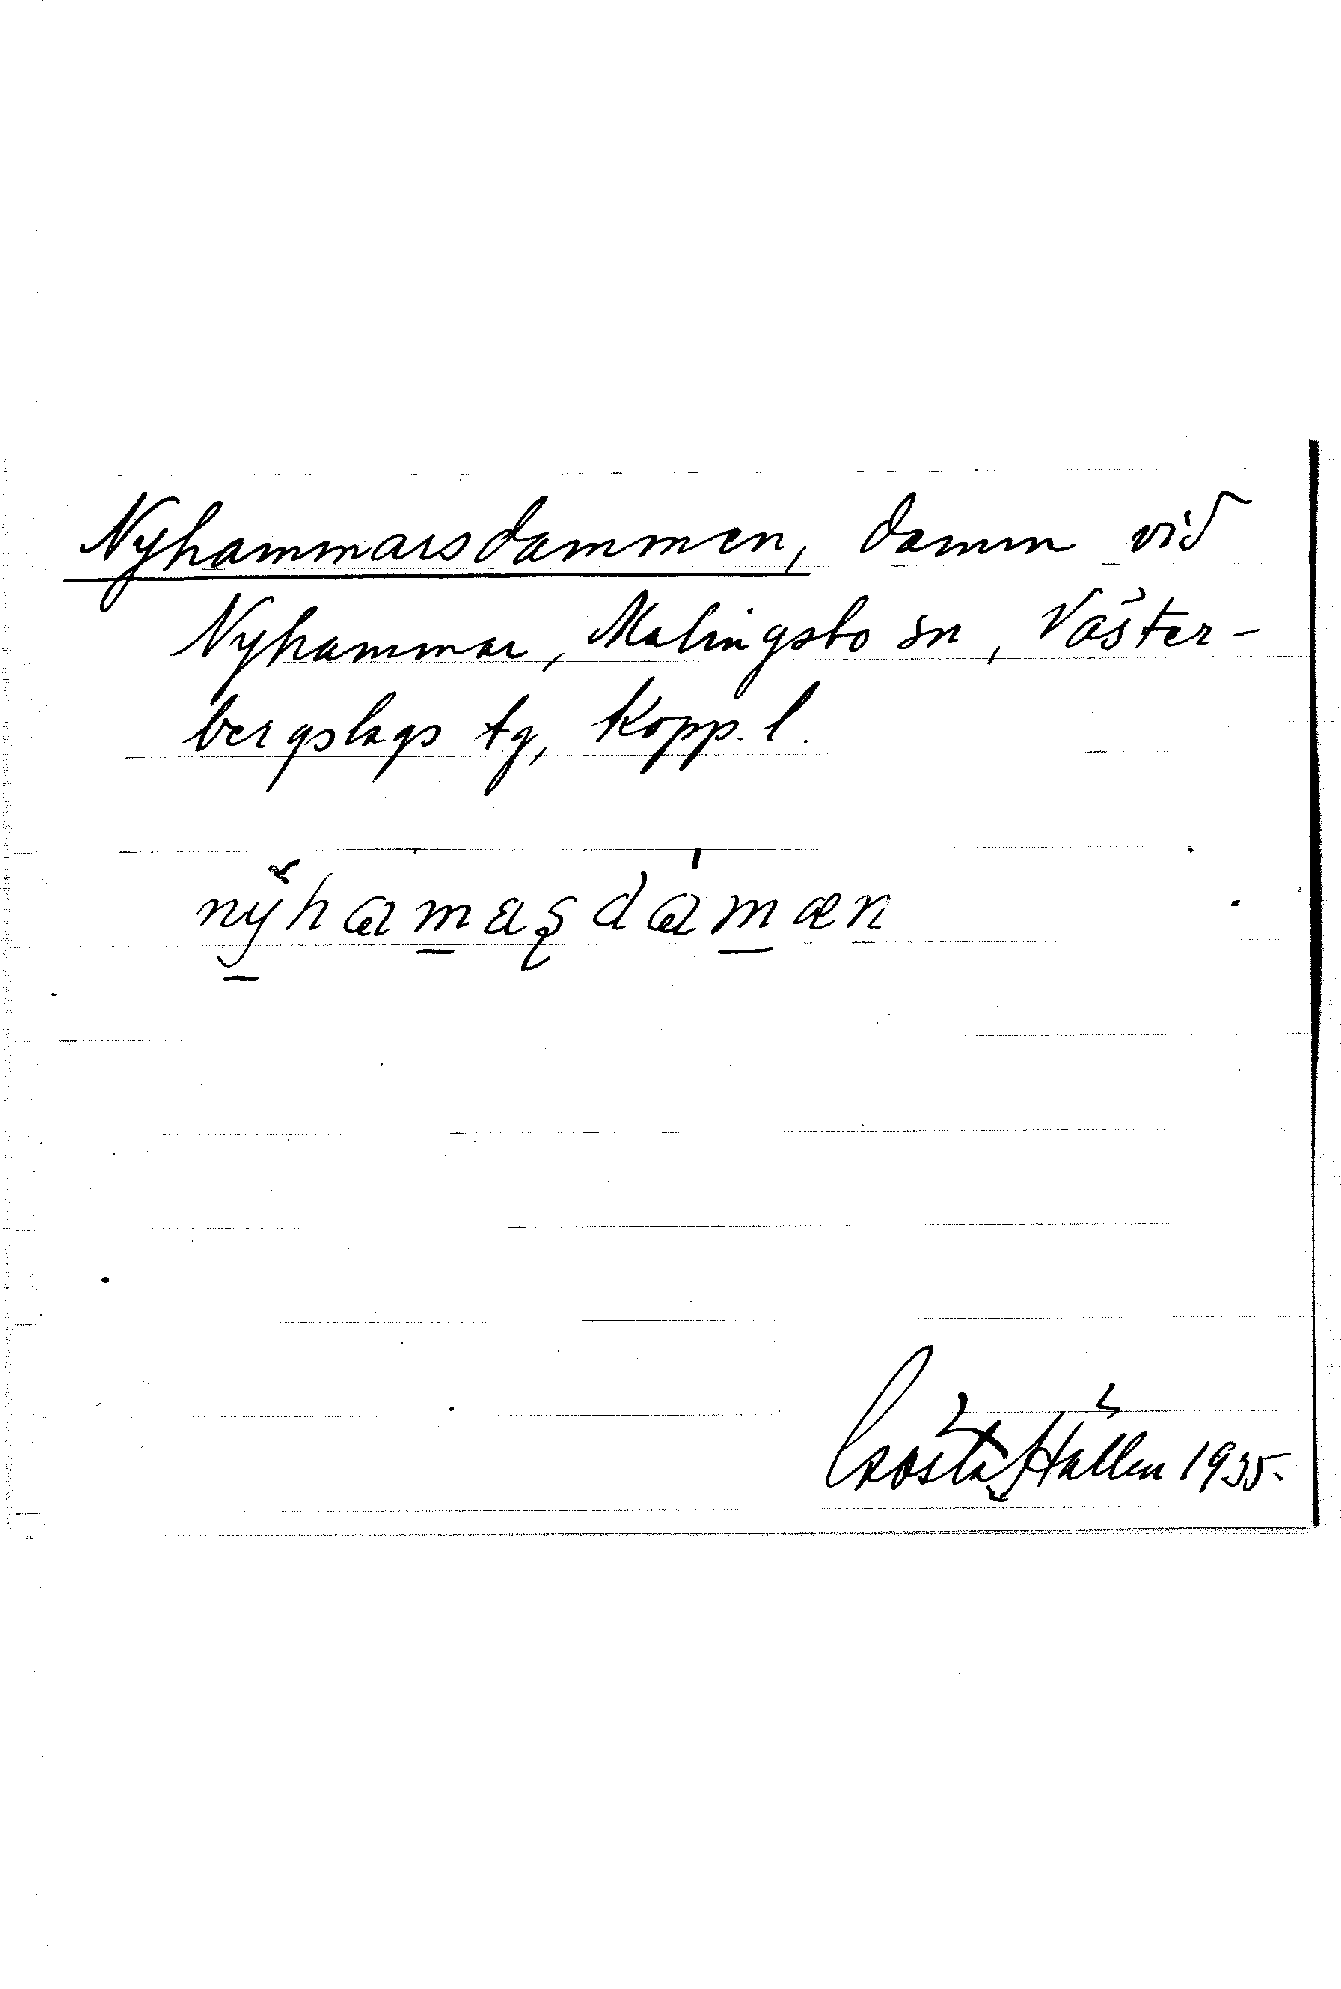 Nyhammarsdammen, damm vid
Nyhammar, Malingsbo sn, Väster-
bergslags tg, Kopp. l.
nyhamaʂdamæn
Gösta Hällen 1935.